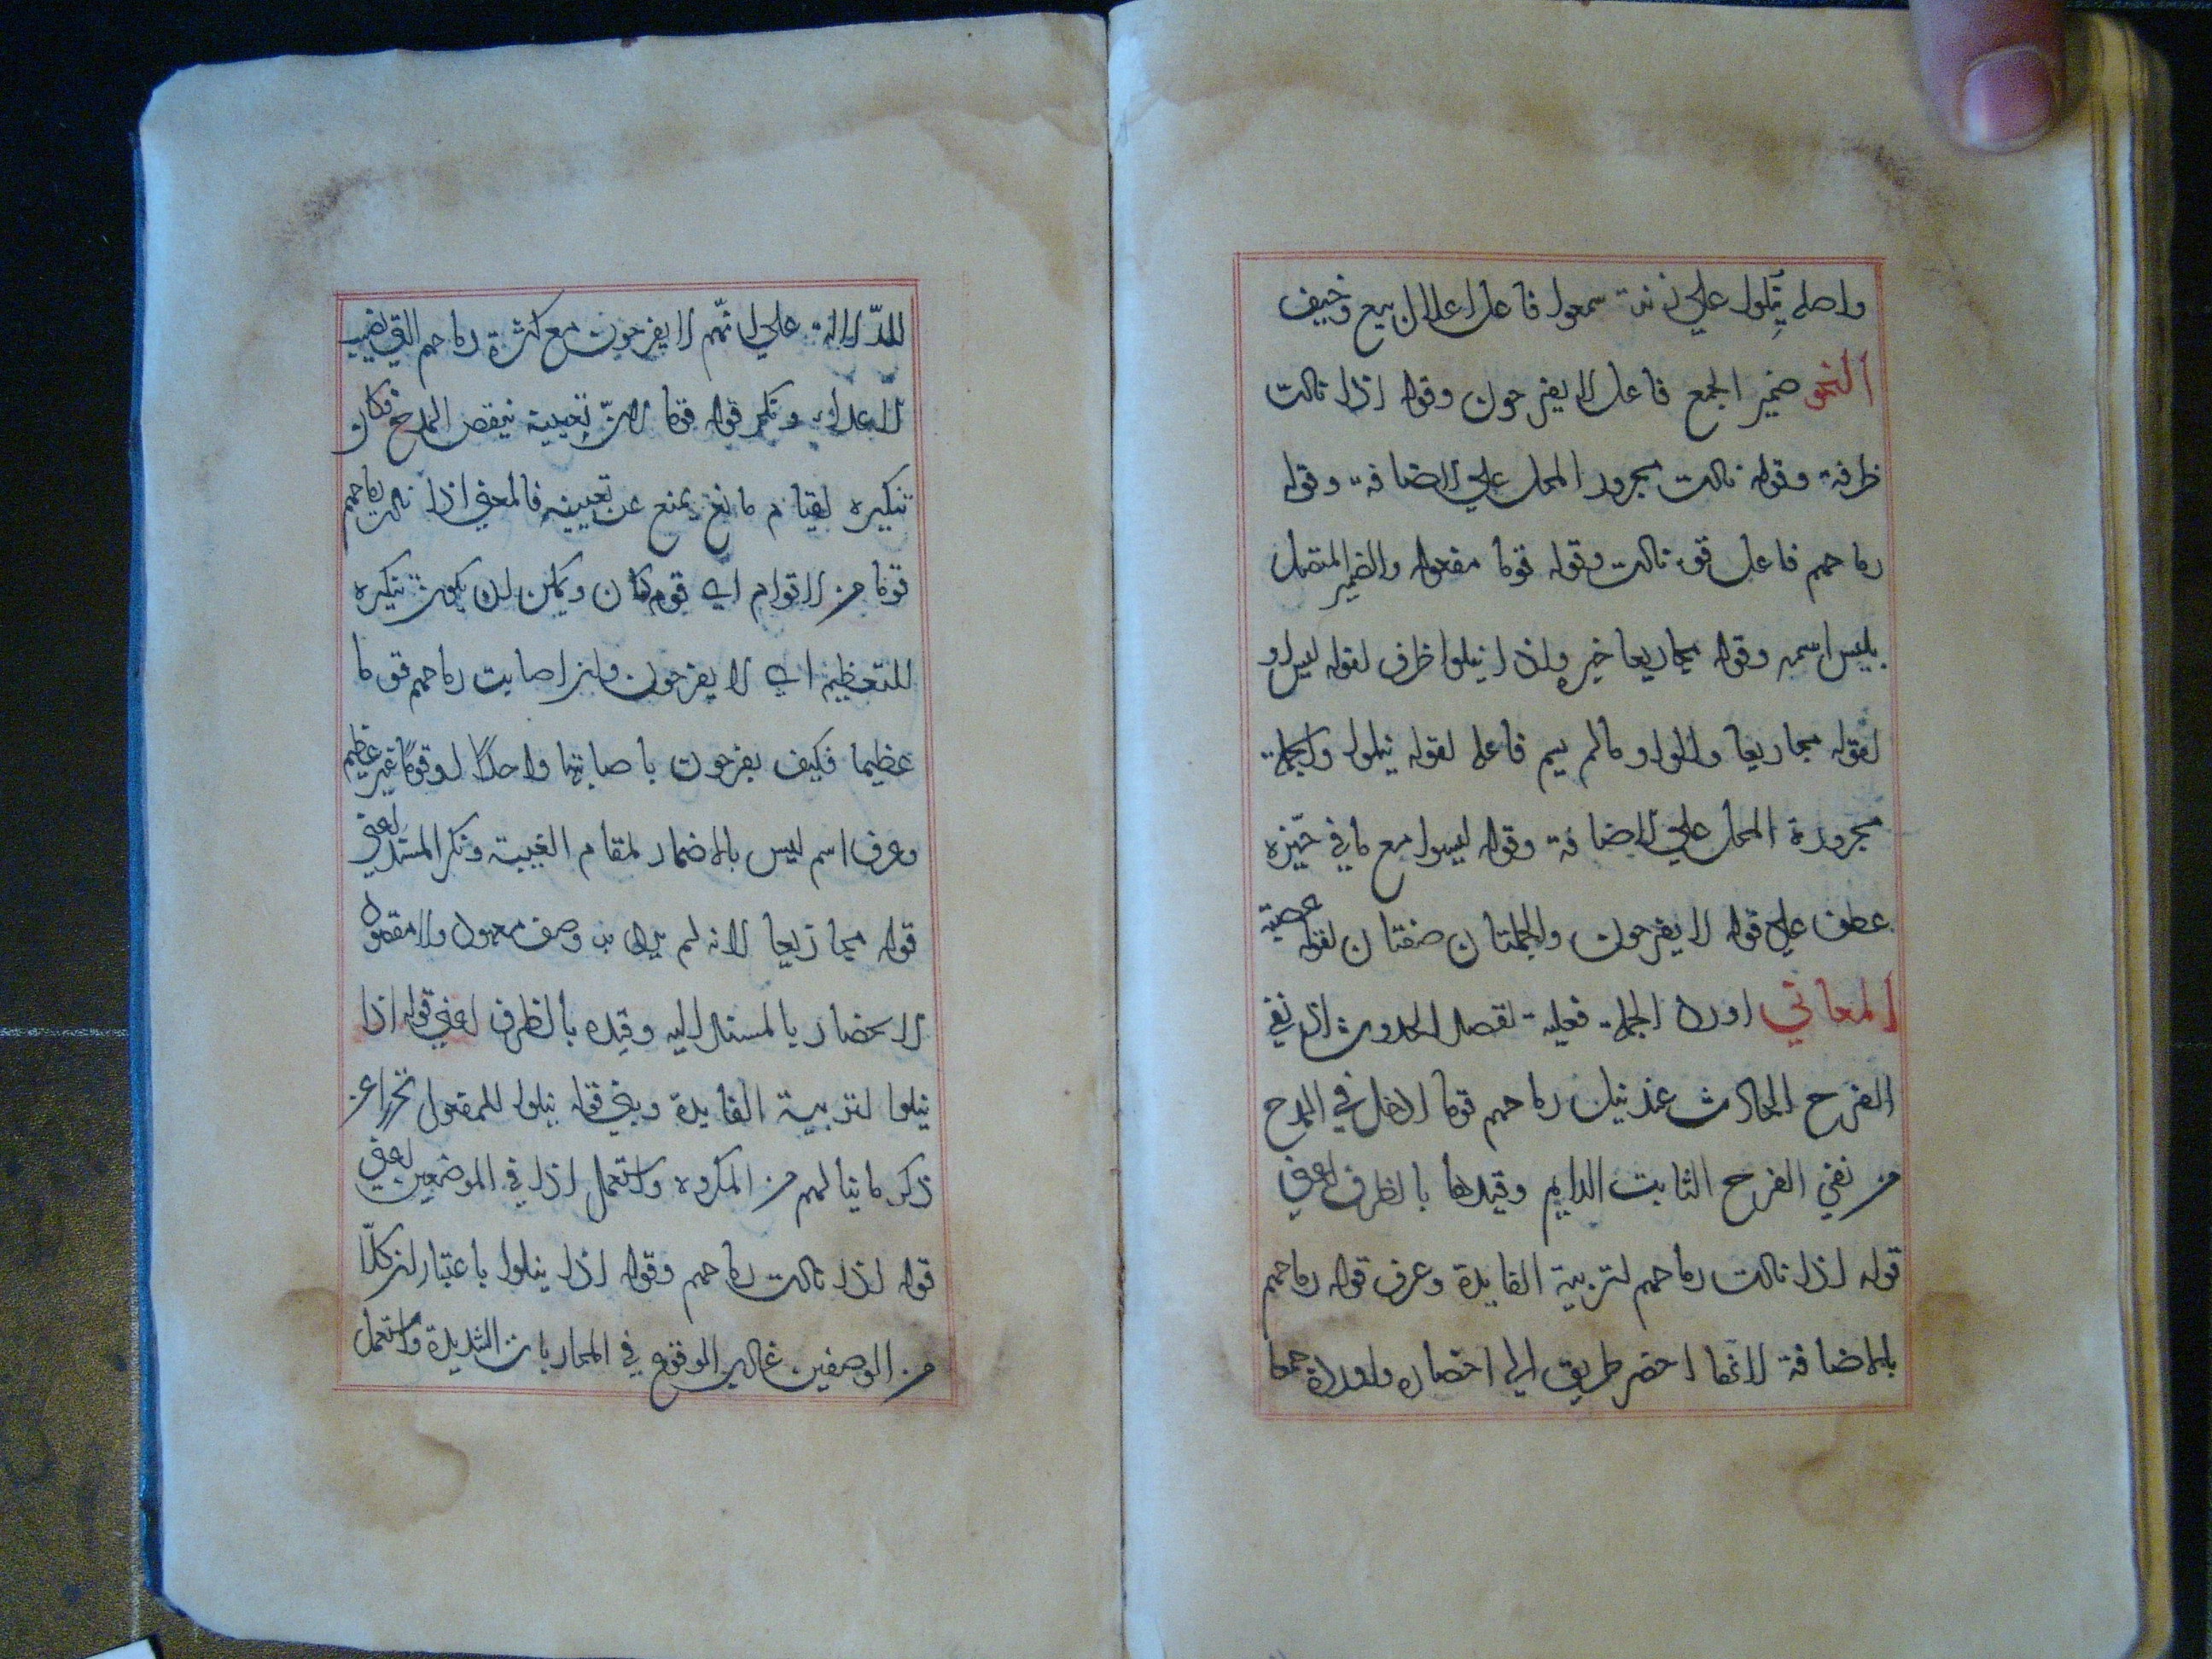 واصله نيلوا على زنة سمعوا فاعل اعلال بيع وخيف
النحو ضمير الجمع فاعل لا يفرحون وقوله اذا نالت
ظرفه وقوله نالت مجرور المحل على الاضافة وقوله
رماحهم فاعل قوله نالت وقوله قوما مفعوله والضمير المتصل
بليس اسمه وقوله مجازيعا خبره واذا نيلوا ظرف لقوله ليس او
لقوله مجازيعا والواو مالم يسم فاعله لقوله نيلوا والجملة
مجرورة المحل على الاضافة وقوله ليسوا مع ما في حيّزه
عطف على قوله لا يفرحون والجملتان صفتان لقوله عصبة
المعاني اورد الجملة فعلية لقصد الحدوث اذ نفي
الفرح الحادث عند نيل رماحهم قوما ادخل في المدح
من نفي الفرح الثابت الدايم وقيدها بالظرف اعني
قوله اذا نالت رماحهم لتربية الفايدة وعرف قوله رماحهم
بالاضافة لانها اخصر طريق الى احضاره واورده جمعا
للدّلالة على انهّم لا يفرحون مع كثرة رماحهم التي تصيب
الاعداء ونكر قوله قوما لانّ تعيينه ينقص المدح فكان
تنكيره لقيام مانع يمنع عن تعيينه فالمعني اذا نالت رماحهم
قوما من الاقوام اي قوم كان ويمكن ان يكون تنكيره
للتعظيم اي لا يفرحون وان اصابت رماحهم قوما
عظيما فكيف يفرحون باصابتها واحدًا او قومًا غير عظيم
وعرف اسم ليس بالاضمار لمقام الغيبة ونكر المسند اعني
قوله مجازيعا لانه لم يرد به وصف معهود ولا مقصود
الانحصار بالمسند اليه وقيده بالظرف اعني قوله اذا
نيلوا لتربية الفايدة وبني قوله نيلوا للمفعول تحرزا عن
ذكر ما ينالهم من المكروه واستعمل اذا في الموضعين اعني
قوله اذا نالت رماحهم وقوله اذا نيلوا باعتبار ان كلّا
من الوصفين غالب الوقوع في المحاربات الشديدة واستعمل